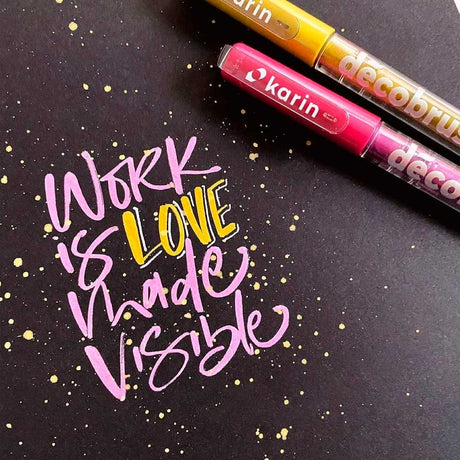 karin
decobrus
karin
deco
Work
is LOVE
Made
Visible